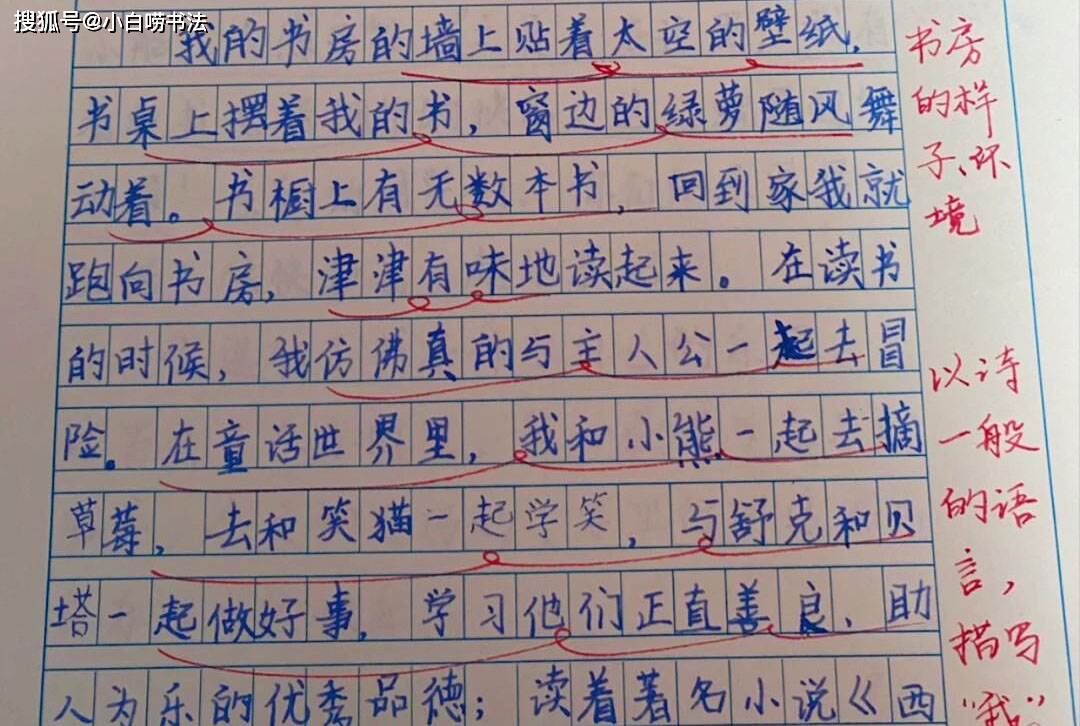 搜狐号@小白唠书法
我的书房的墙上贴着太空的壁纸，
书桌上摆着我的书，窗边的绿萝随风舞
动着。书橱上有无数本书，回到家我就
跑向书房，津津有味地读起来。在读书
的时候，我仿佛真的与主人公一起去冒
险。在童话世界里，我和小熊一起去摘
草莓，去和笑猫一起学笑，与舒克和贝
塔一起做好事，学习他们正直善良、助
人为乐的优秀品德；读着著名小说《西
书房
的样
子、环
境
以诗
一般
的语
言，
描写
“我”